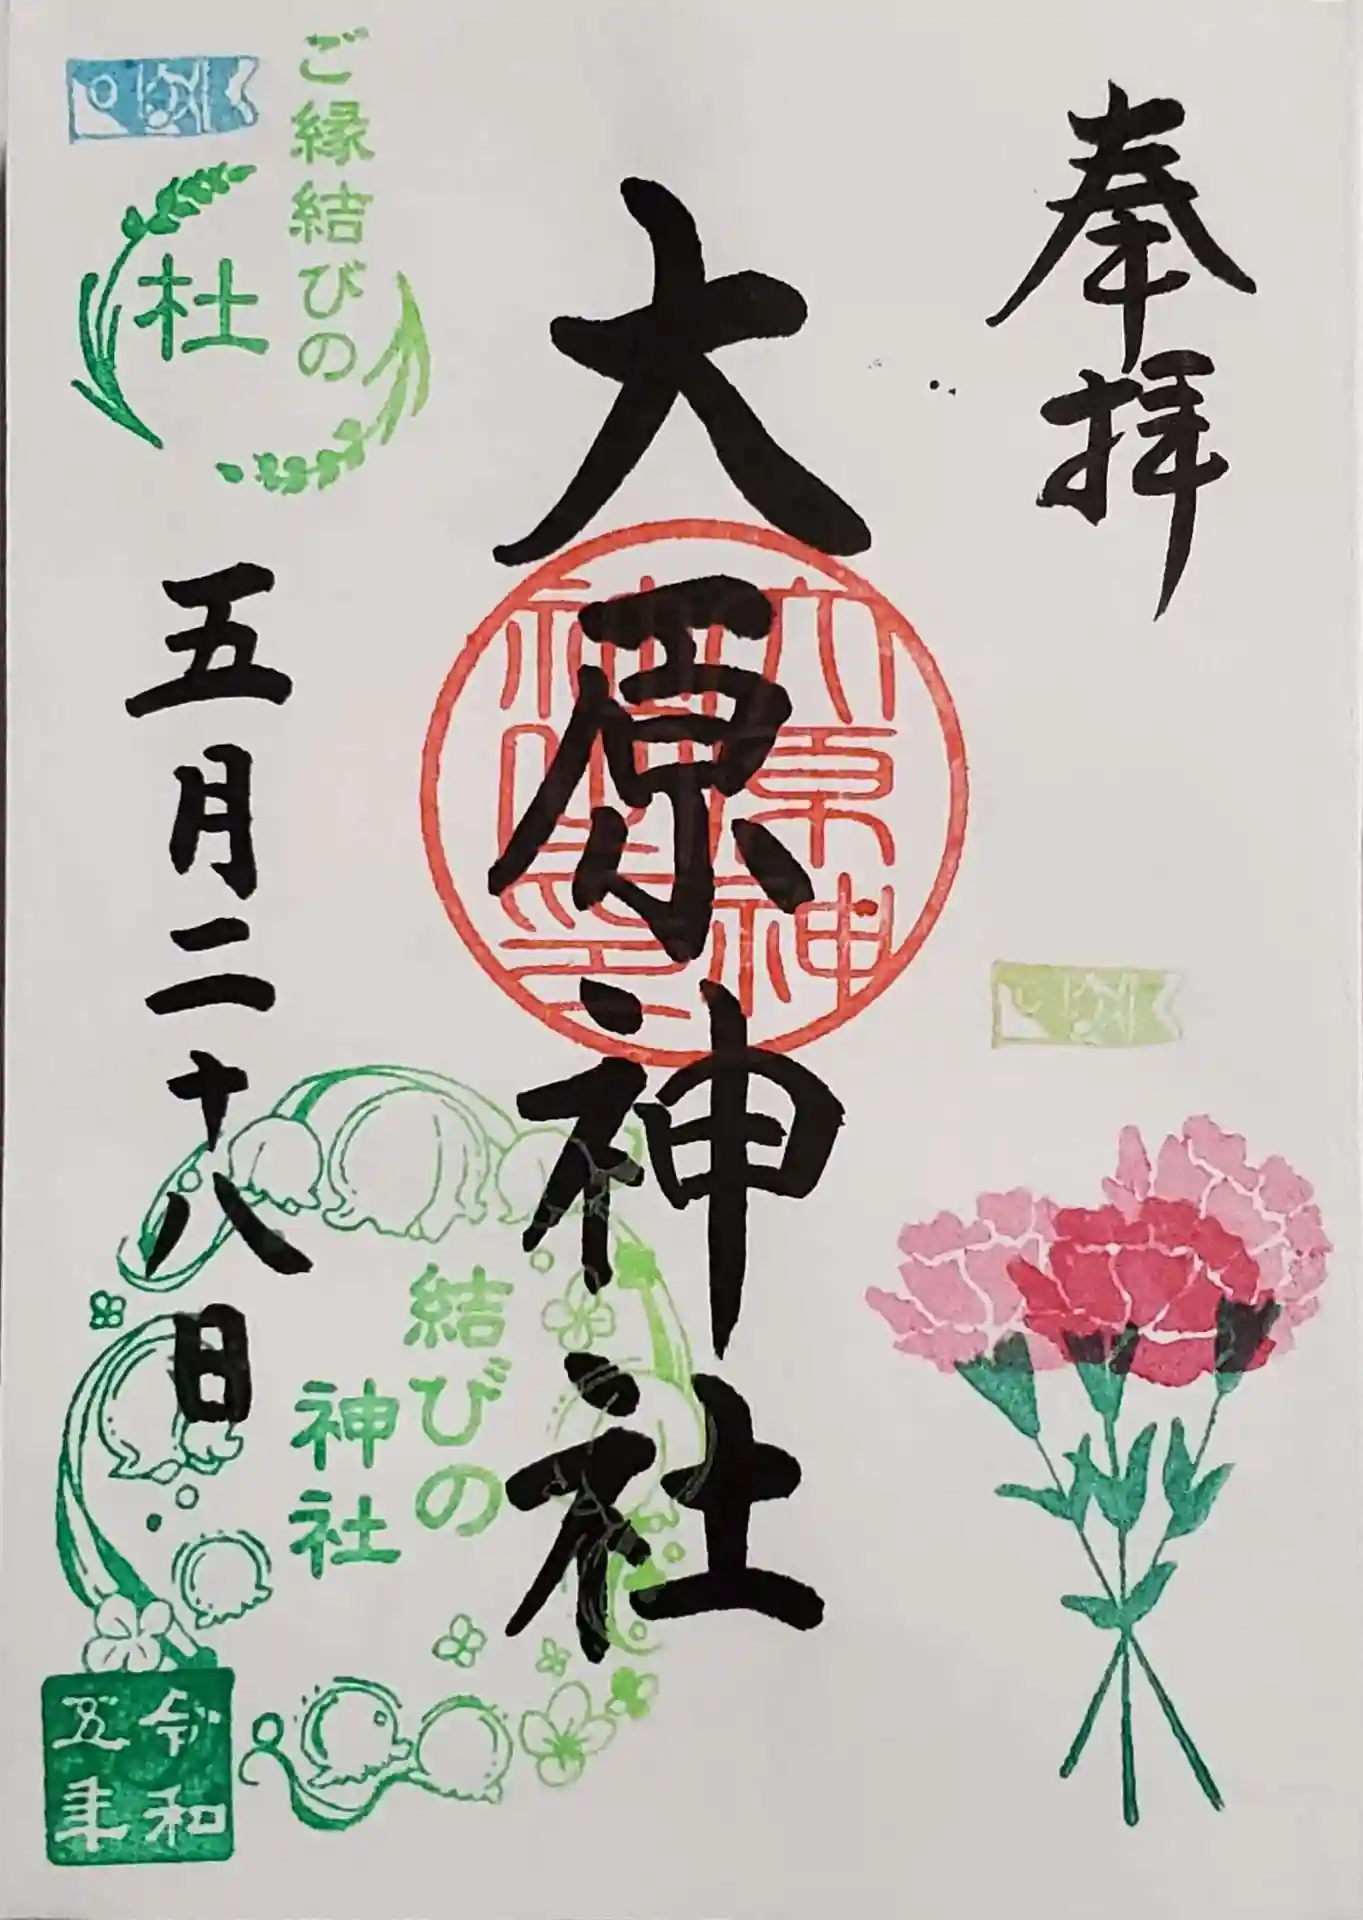 奉拝
大原神社
大原神社之印
ご縁結びの
杜
五月二十八日
結びの
神社
令和
五年